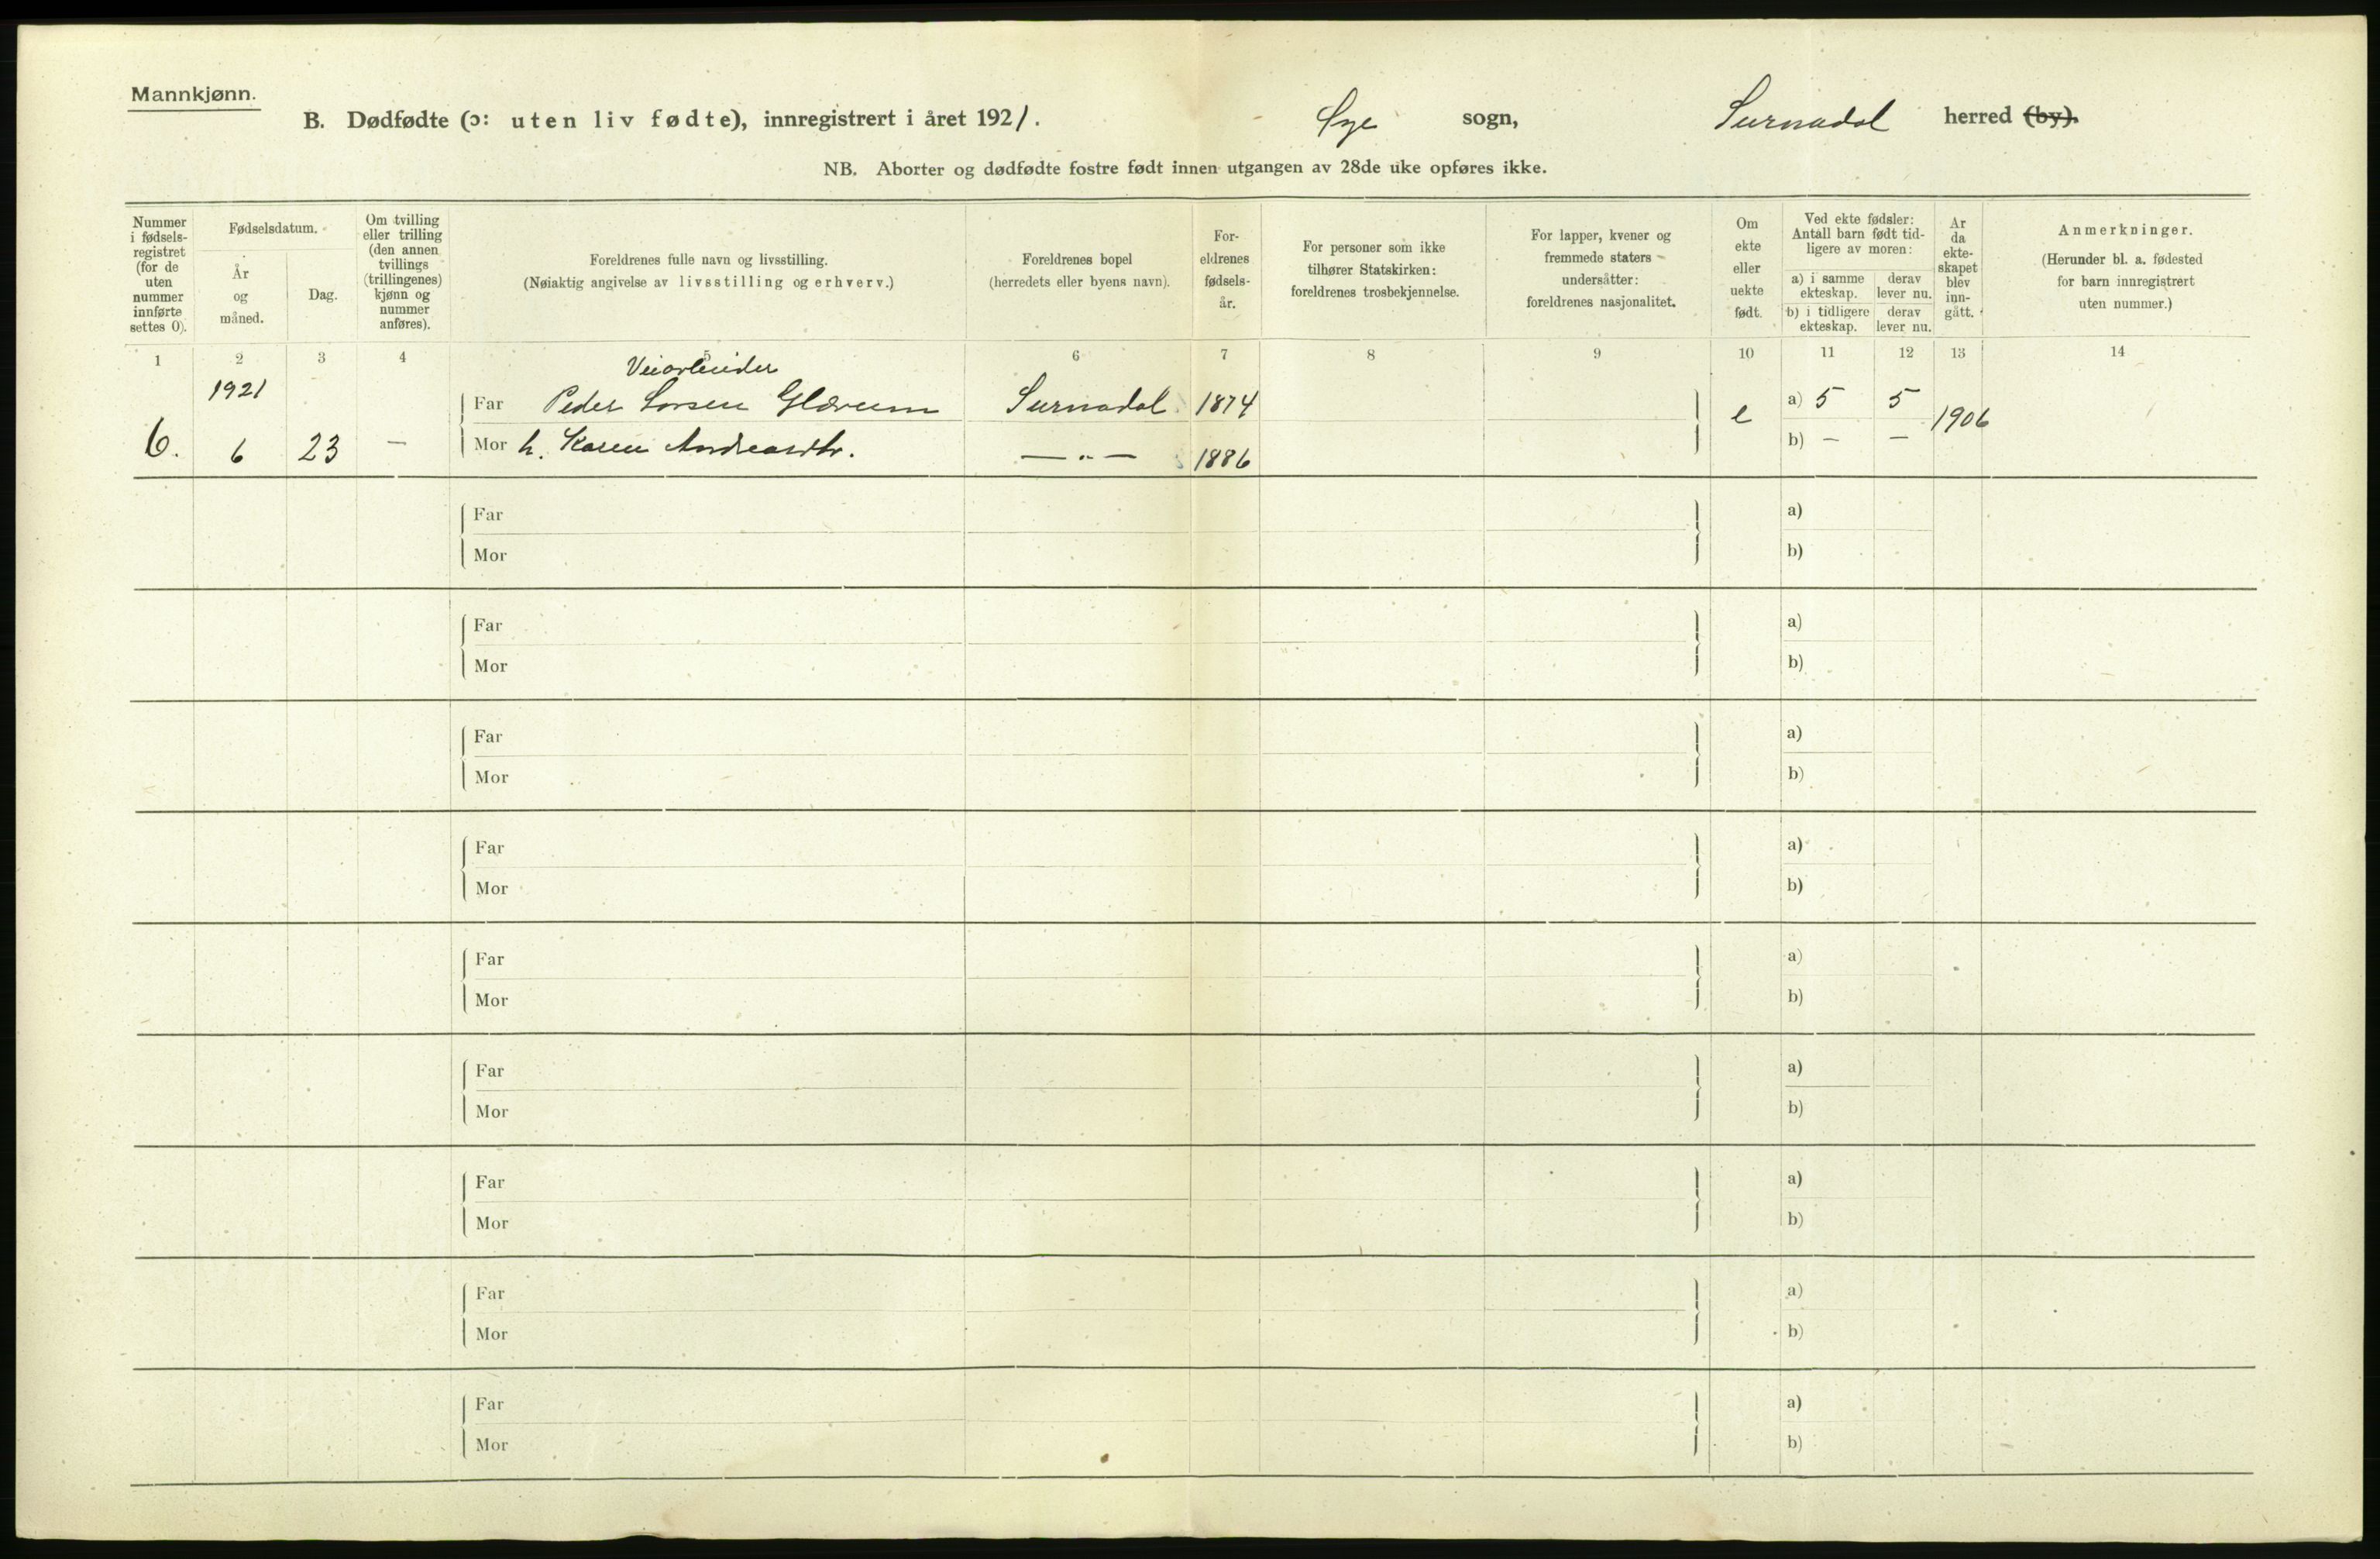 Mannkjønn.
B. Dødfødte (ɔ: uten liv fødte), innregistrert i året 1921. Øye sogn, Surnadal herred (by).
NB. Aborter og dødfødte fostre født innen utgangen av 28de uke opføres ikke.
Nummer i fødsels-registret (for de uten nummer innførte settes 0).
Fødselsdatum.
År og måned.
Dag.
Om tvilling eller trilling (den annen tvillings (trillingenes) kjønn og nummer anføres).
Foreldrenes fulle navn og livsstilling.
(Nøiaktig angivelse av livsstilling og erhverv.)
Foreldrenes bopel
(herredets eller byens navn).
For-eldrenes fødsels-år.
For personer som ikke
tilhører Statskirken:
foreldrenes trosbekjennelse.
For lapper, kvener og
fremmede staters
undersåtter:
foreldrenes nasjonalitet.
Om ekte eller uekte født.
Ved ekte fødsler:
Antall barn født tid-
ligere av moren:
a) i samme ekteskap. derav lever nu.
b) i tidligere ekteskap. derav lever nu.
År da ekte-skapet blev inn-gått.
Anmerkninger.
(Herunder bl. a. fødested
for barn innregistrert
uten nummer.)
1 2 3 4 5 6 7 8 9 10 11 12 13 14
Veiarbeider
1921 Far Peder Larsen Glærum Surnadal 1874 e a) 5 5 1906
6. 6 23 — Mor h. Karen Andreasdtr. —"— 1886 b) — —
Far a)
Mor b)
Far a)
Mor b)
Far a)
Mor b)
Far a)
Mor b)
Far a)
Mor b)
Far a)
Mor b)
Far a)
Mor b)
Far a)
Mor b)
Far a)
Mor b)